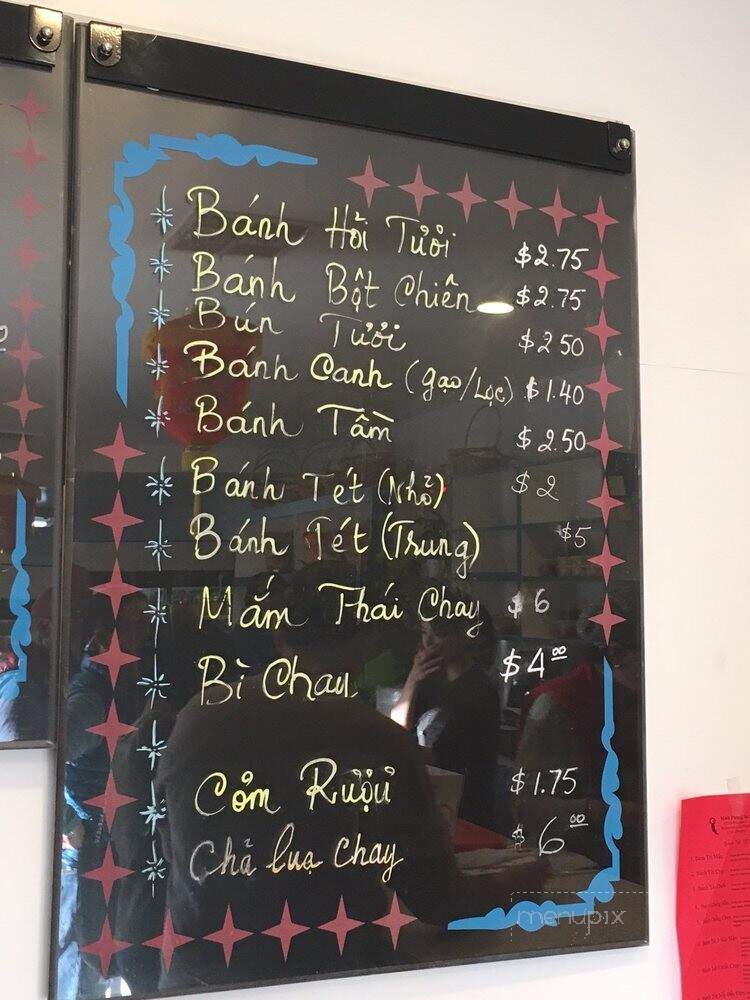 Bánh Hỏi Tưởi $2.75
Bánh Bột Chiên $2.75
Bún Tưởi $2.50
Bánh Canh (gạo/Lọc) $1.40
Bánh Tầm $2.50
Bánh Tét (Nhỏ) $2
Bánh Tét (Trung) $5
Mắm Thái Chay $6
Bì Chay $4.00
Cơm Rượu $1.75
Chả lụa chay $6.00
menupix